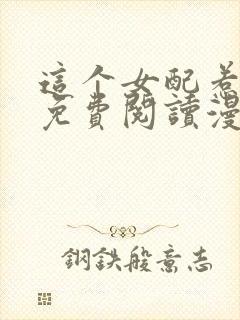 這个女配惹
免費閱讀漫
鋼鉄般意志